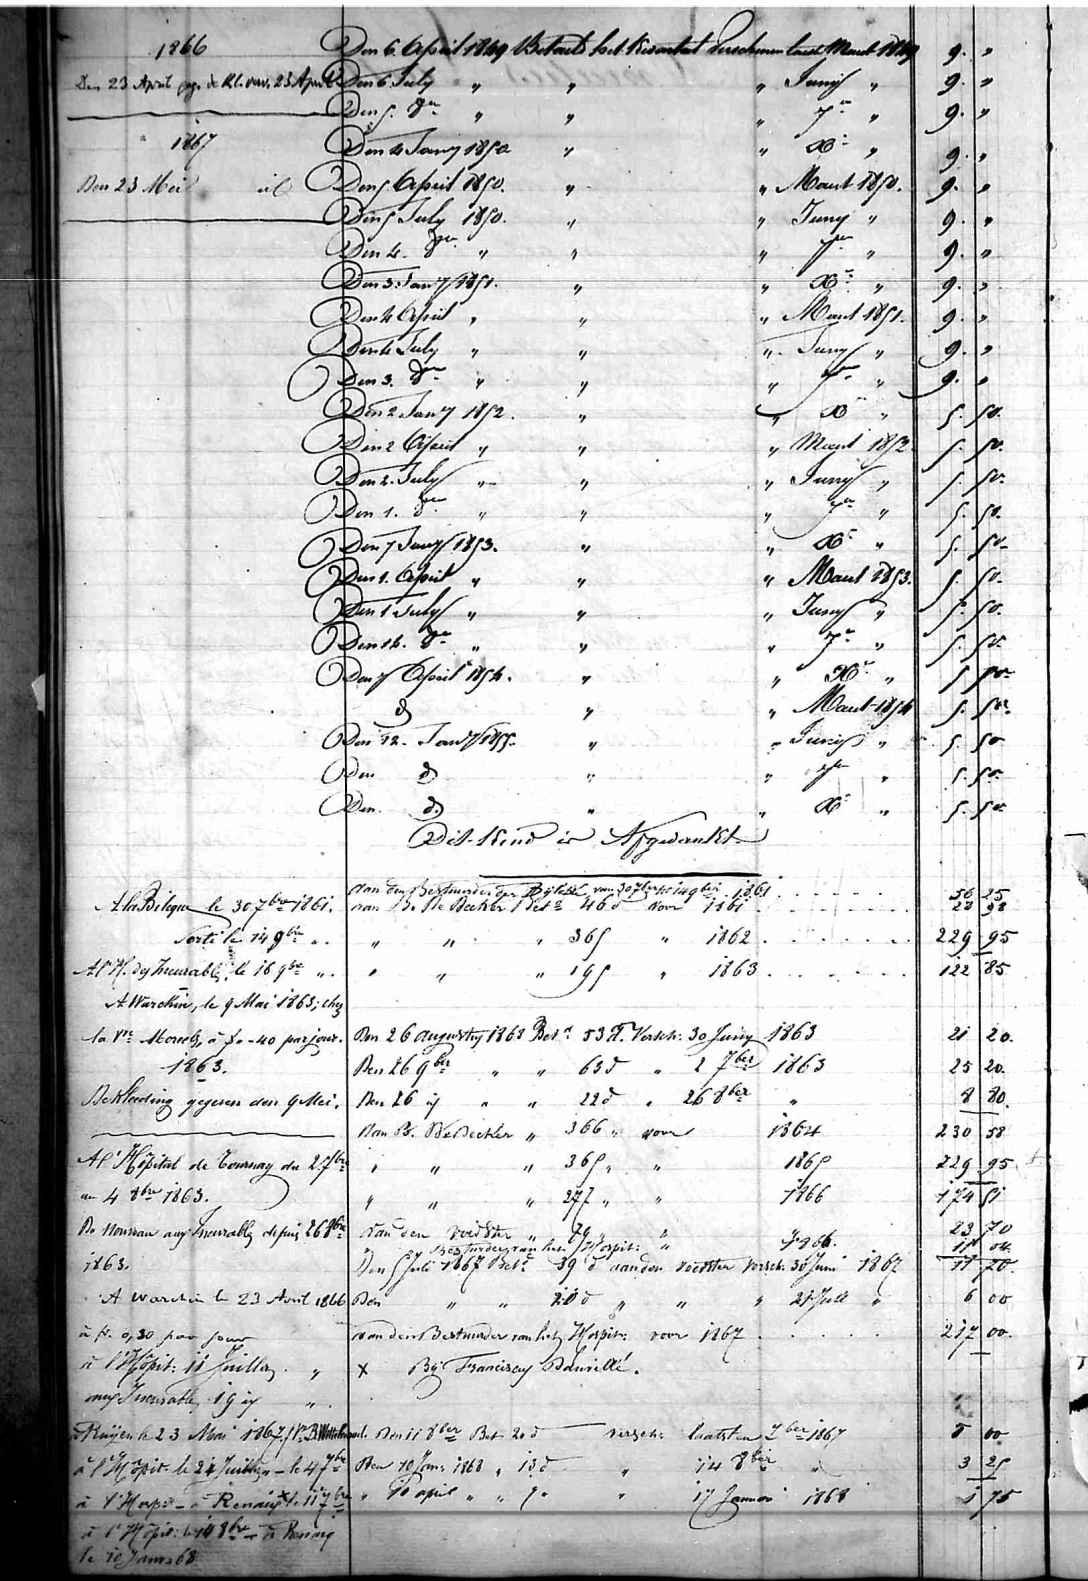 1866 Den 6 April 1849 Betaelt het Kwartael verschenen laest Maert 1849 9. "
Den 23 April 23 April Den 6 July " " " Juny " 9. "
Den 5. 8er " " " 7er " 9. "
1867 Den 4 Jany 1850 " " Xr " 9. "
Den 23 Mei Den 5 April 1850. " " Maert 1850. 9. "
Den 5 July 1850. " " Juny " 9. "
Den 4. 8er " " " 7er " 9. "
Den 3. Jany 1851. " " Xr " 9. "
Den 4 April " " " Maert 1851. 9. "
Den 4 July " " " Juny " 9. "
Den 3. 8er " " " 7er " 9. "
Den 2 Jany 1852. " " Xr " 5. 50.
Den 2 April " " " Maert 1852. 5. 50.
Den 2. July " " " Juny " 5. 50.
Den 1. 8er " " " 7er " 5. 50.
Den 7 Jany 1853. " " Xr " 5. 50.
Den 1. April " " " Maert 1853. 5. 50.
Den 1 July " " " Juny " 5. 50.
Den 14. 8er " " " 7er " 5. 50.
Den 7 April 1854. " " Xr " 5 50
d " " Maert 1854 5. 50.
Den 12. Jany 1855. " " Juny " 5 50
Den d " " 7er " 5. 50
Den. d. " " Xr " 5. 50
Dit Kind is Afgedankt
van den Bestuurder der Bijloke van 30 7ber tot 14 9ber 1861 56 25
A la Biloque le 30 7bre 1861. van B. De Decker Bet. 46 d voor 1861 28 98
Sorti le 14 9bre " " " " 365 " 1862 229 95
A l'H. des Incurables, le 16 9bre " " " " 195 " 1863 122 85
A Warchin, le 9 Mai 1863; chez
la Vve Morel, à f. - 40 par jour. Den 26 augusty 1863 Bet. 53 d. Versch: 30 Juny 1863 21 20.
1863. Den 26 9ber " " 63 d " 2 7ber 1863 25 20.
Bekleeding gegeven den 9 Mei. Den 26 " " 22 d " 26 8ber " 8 80.
Van B. De Decker " 366 " voor 1864 230 58
A l'Hôpital de Tournay du 2 7bre " " " 365 " " 1865 229 95
au 4 8bre 1863. " " " 277 " " 1866 174 51
De nouveau aux Incurables depuis 26 8bre van den voedster " 79 " " 23 70
" Bestuurder van het Hospit: " 1866. 11 04
1863. Den 5 Juli 1867 Bet. 39 d aan den voedster versch: 30 Juni 1867 11 70.
A Warchin le 23 Avril 1866 Den " " 20 d " " " 21 Juli " 6 00
à fr. 0,30 par jour van den Bestuurder van het Hospit: voor 1867 217 00.
à l'Hôpit: 11 Juillet " X Bij Franciscus
aux Incurables, 19 "
Ruijen le 23 Mai 1867 Den 11 8ber Bet 20 d versch: laatsten 7ber 1867 5 00
à l'Hôpit: le 21 Juillet - le 4 7bre Den 10 Jan: 1868 " 13 d " 14 8ber " 3 25
à l'Hosp: - à Renaix le 11 7bre " 10 april " " 7 " " 17 Januari 1868 1 75
à l'Hôpit: le 14 8bre - à Renaix
le 10 Janv. 68